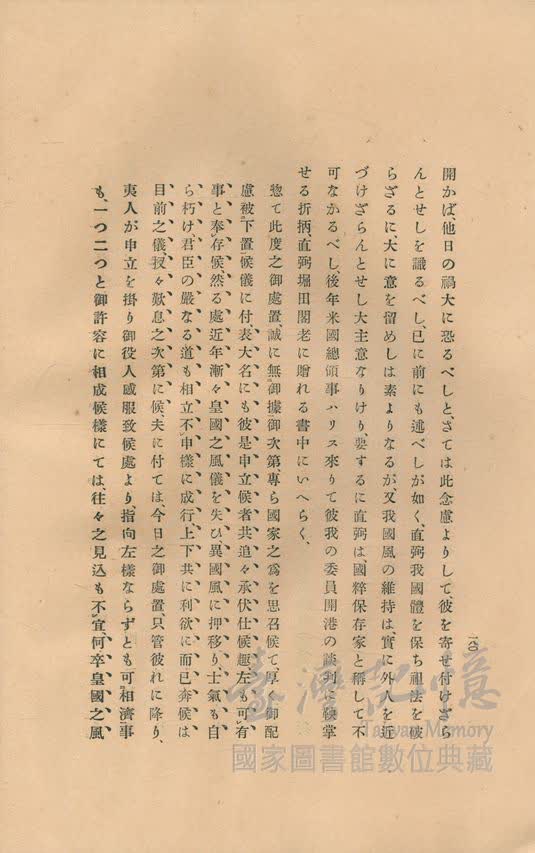 開かば、他日の禍大に恐るべしと、さては此念慮よりして、彼を寄せ付けざら
んとせしを識るべし、已に前にも述べしが如く、直弼我國體を保ち祖法を破
らざるに大に意を留めしは素よりなるが、又我國風の維持は、實に外人を近
づけざらんとせし大主意なりけり、要するに直弼は國粹保存家と稱して不
可なかるべし、後年米國總領事ハリス來りて彼我の委員開港の談判に鞅掌
せる折柄、直弼堀田閣老に贈れる書中にいへらく、
惣て此度之御處置、誠に無御據御次第、專ら國家之爲を思召候て、厚く御配
慮被下置候儀に付表大名にも彼是申立候者共追々承伏仕候趣左も可有
事と奉存候然る處近年漸々皇國之風儀を失ひ、異國風に押移り、士氣も自
ら朽け、君臣の嚴なる道も相立不申樣に成行、上下共に利欲に而已奔候は
目前之儀扠々歎息之次第に候、夫に付ては今日之御處置、只管彼れに降り、
夷人が申立を掛り御役人感服致候處より、指向左樣ならずとも可相濟事
も、一つ二つと御許容に相成候樣にては、往々之見込も不宜、何卒皇國之風
一〇
臺灣記憶
Taiwan Memory
國家圖書館數位典藏